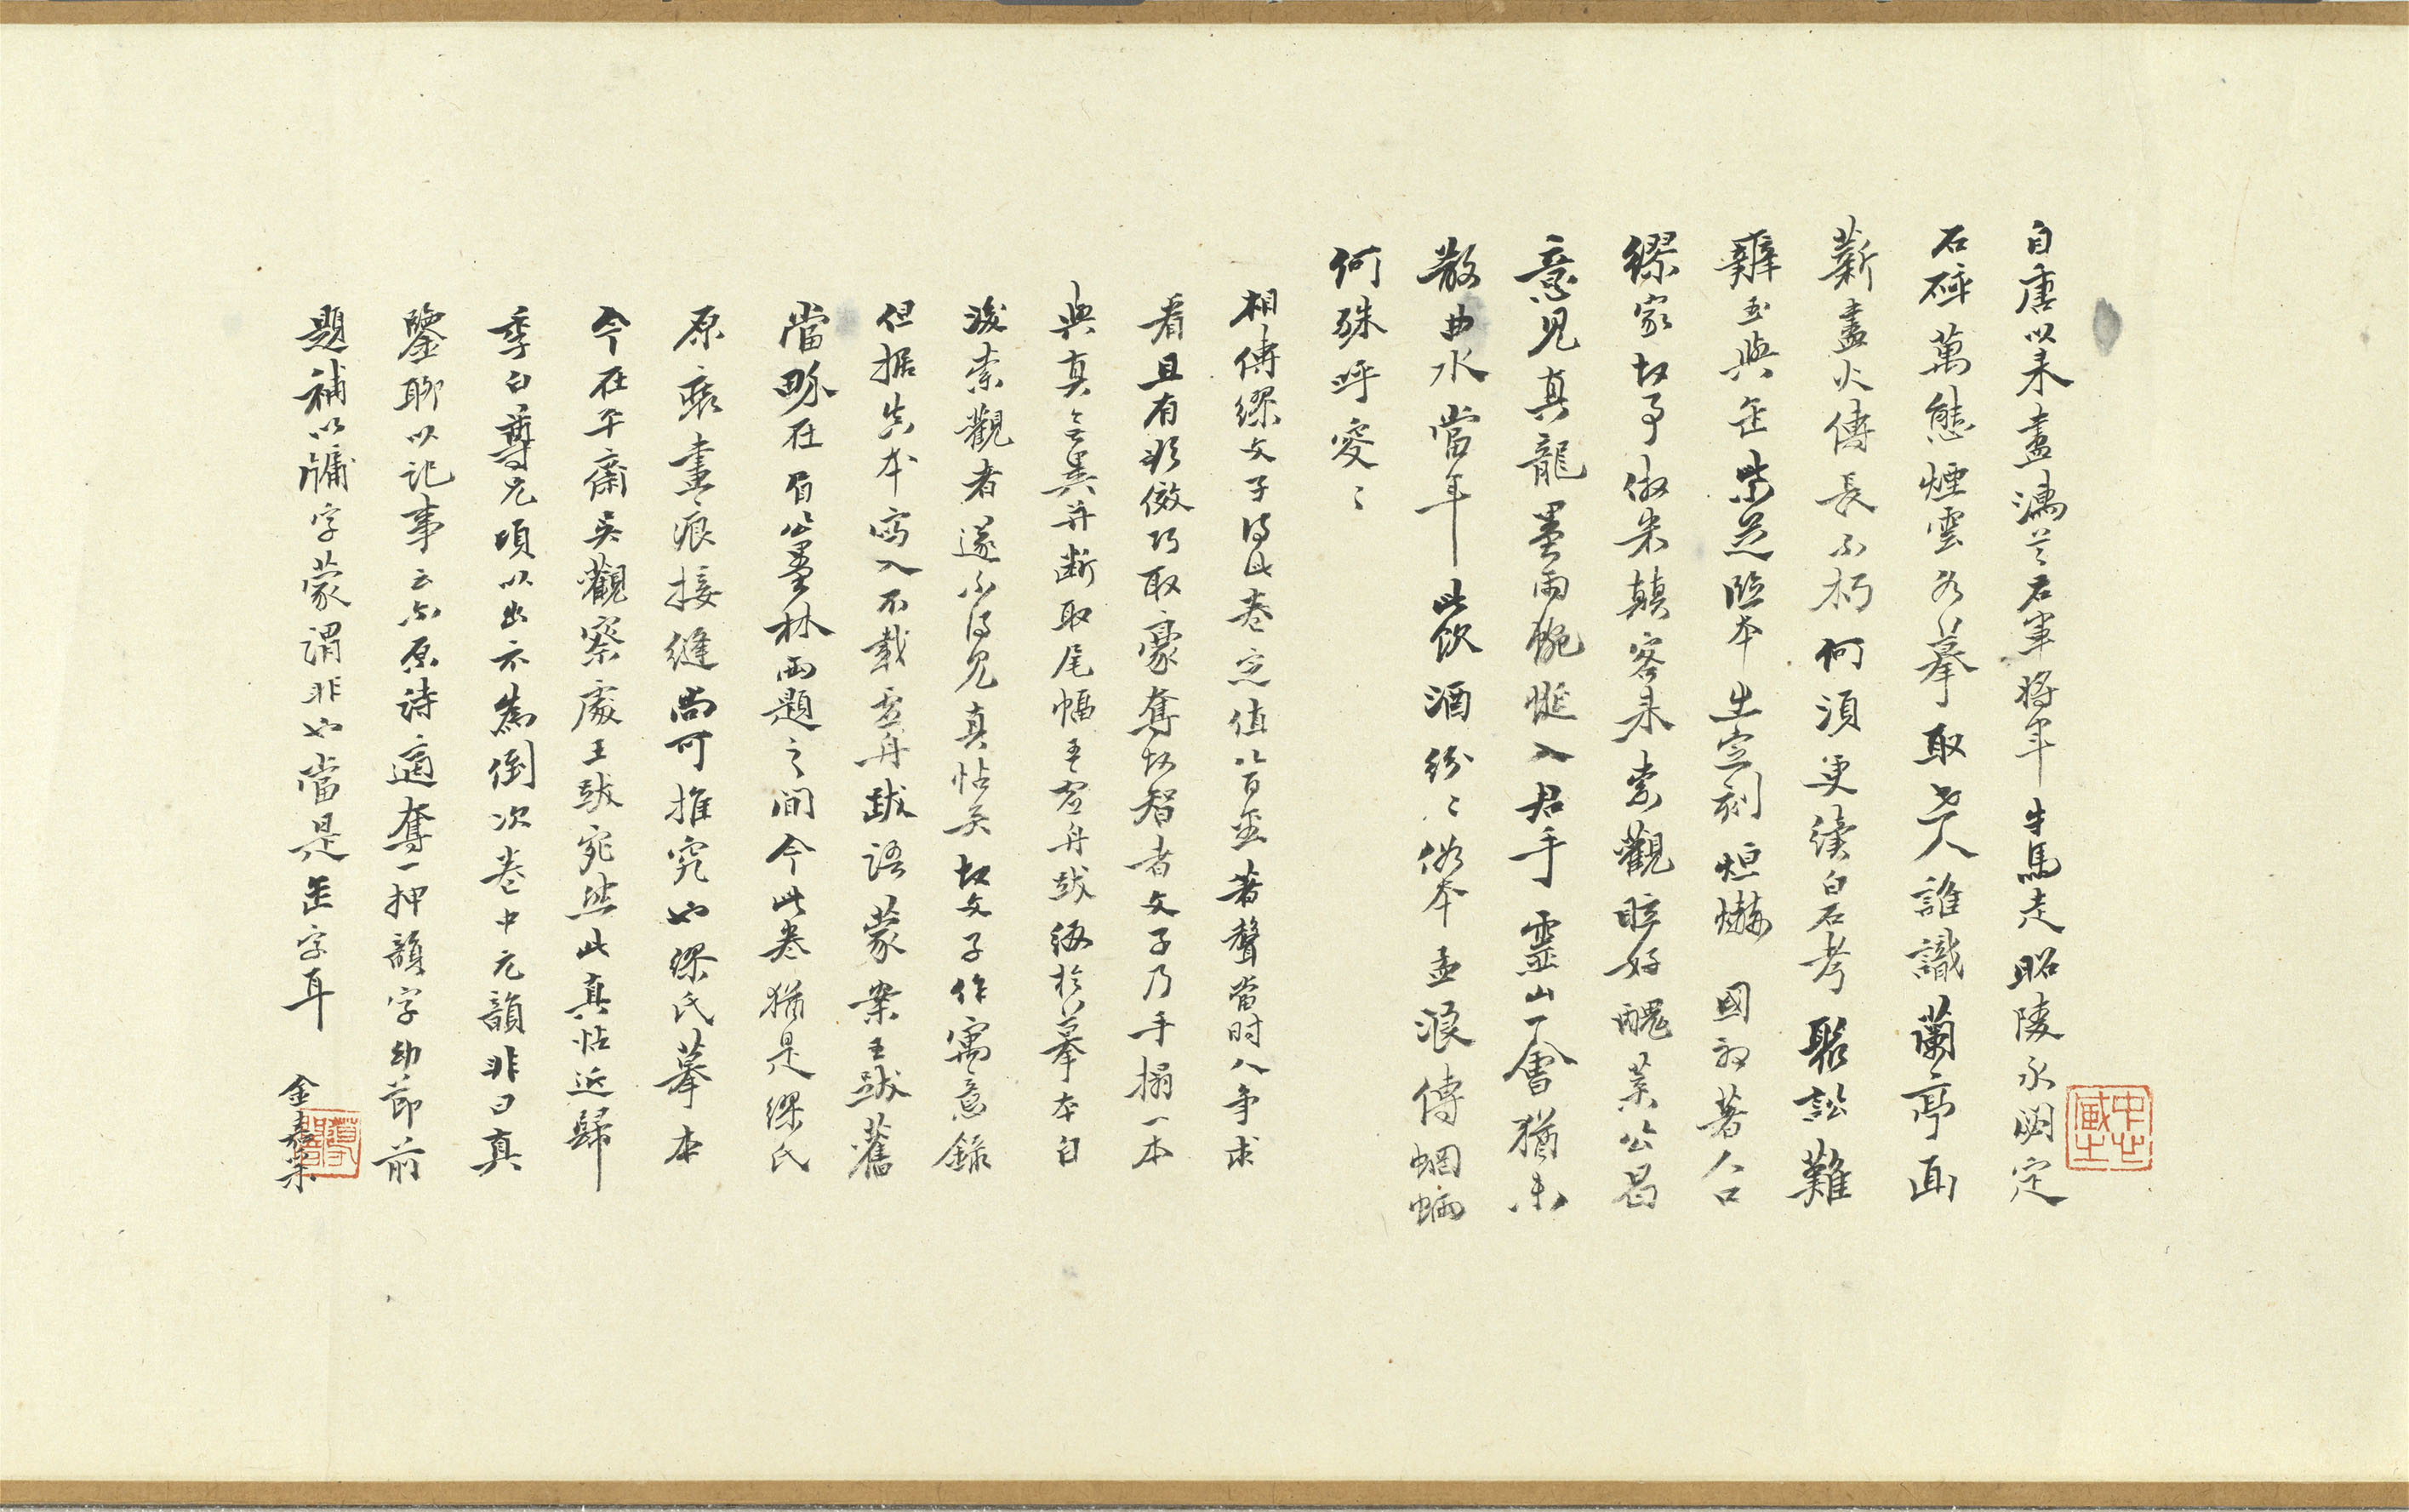 自唐以來畫滿蘭右軍將軍牛馬走昭陵永閟定
石碎萬態煙雲各摹取世人誰識蘭亭面
薪盡火傳長不朽何須更續白石考聚訟難
難玉與缶紫芝臨本出定刻烜爀國初著人口
繆家故事倣米顛客來索觀眩好醜葉公曷
意見真龍墨雨蜿蜒入君手靈山一會猶未
散曲水當年此飲酒紛紛俗本孟浪傳蝄蜽
何殊呼䆀䆀
相傳繆文子得此卷定值八百並著聲當時人爭求
看且有欲傚巧取豪奪故智者文子乃手搨一本
與真無異并斷取尾幅王虛舟跋綴於摹本自
後索觀者遂不得見真帖矣故文子作寓意錄
但据失本寫入不載虛舟跋語蒙案王跋舊
當夥在眉公墨林兩題之間今此卷猶是繆氏
原裝畫痕接縫尚可推究也繆氏摹本
今在平齋吳觀察處王跋宛然此真帖近歸
季白尊兄頃以出示為倒次卷中元韻非曰真
鑒聊以記事云尔原詩適奪一押韻字幼節前
題補以牗字蒙謂非也當是缶字耳 金嘉采